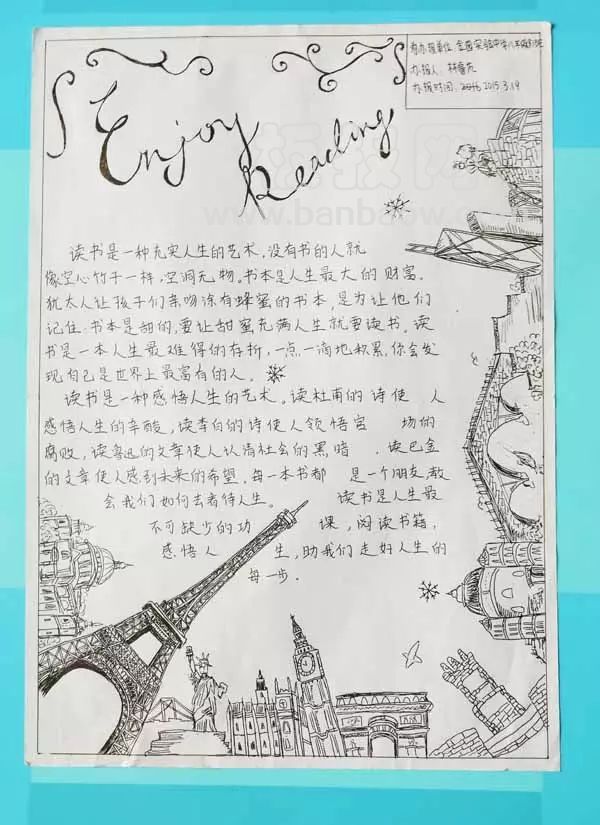 Enjoy
Reading
办报人：林睿
办报时间：2015.3.19
读书是一种充实人生的艺术，没有书的人就
像空心竹子一样，空洞无物。书本是人生最大的财富。
犹太人让孩子们亲吻涂有蜂蜜的书本，是为让他们
记住：书本是甜的，要让甜蜜充满人生就要读书。读
书是一本人生最难得的存折，一点一滴地积累，你会发
现自己是世界上最富有的人。
读书是一种感悟人生的艺术。读杜甫的诗使 人
感悟人生的辛酸，读李白的诗使人领悟官 场的
腐败，读鲁迅的文章使人认清社会的黑暗 ，读巴金
的文章使人感到未来的希望，每一本书都 是一个朋友，教
会我们如何去看待人生。 读书是人生最
不可缺少的功 课，阅读书籍，
感悟人 生，助我们走好人生的
每一步.
www.banbaow.c